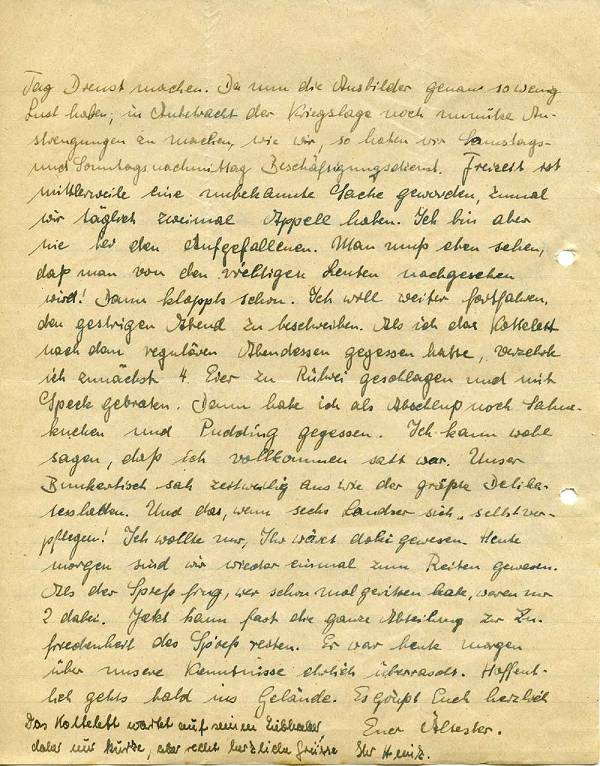 Tag Dienst machen. Da nun die Ausbilder genau so wenig
Lust haben, in Anbetracht der Kriegslage noch unnütze An-
strengungen zu machen, wie wir, so haben wir Samstags-
und Sonntagsnachmittag Beschäftigungsdienst. Freizeit ist
mittlerweile eine unbekannte Sache geworden, zumal
wir täglich zweimal Appell haben. Ich bin aber
nie bei den Aufgefallenen. Man muß eben sehen,
daß man von den richtigen Leuten nachgesehen
wird! Dann klappts schon. Ich will weiter fortfahren,
den gestrigen Abend zu beschreiben. Als ich das Kottelett
nach dem regulären Abendessen gegessen hatte, verzehrte
ich zunächst 4 Eier zu Rührei geschlagen und mit
Speck gebraten. Dann habe ich als Abschluß noch Sahne-
kuchen und Pudding gegessen. Ich kann wohl
sagen, daß ich vollkommen satt war. Unser
Bunkertisch sah zeitweilig aus wie der größte Delika-
tessladen. Und das, wenn sechs Landser sich selbst ver-
pflegen! Ich wollte nur, Ihr wäret dabei gewesen. Heute
morgen sind wir wieder einmal zum Reiten gewesen.
Als der Spieß frug, wer schon mal geritten habe, waren nur
2 dabei. Jetzt kann fast die ganze Abteilung zur Zu-
friedenheit des Spieß reiten. Er war heute morgen
über unsere Kenntnisse ehrlich überrascht. Hoffent-
lich gehts bald ins Gelände. Es grüßt Euch herzlich
Euer Ältester.
Das Kottelett wartet auf seinen Liebhaber,
daher nur kurze, aber recht herzliche Grüsse Ihr Heinz.